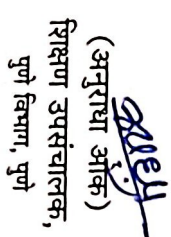 (अनुराधा ओक)
शिक्षण उपसंचालक,
पुणे विभाग, पुणे